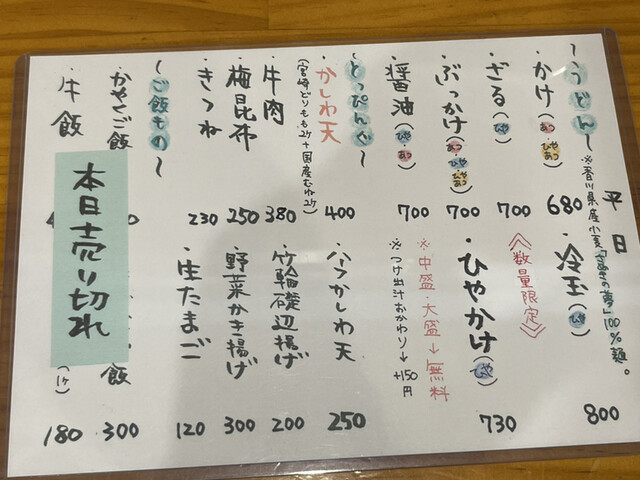 平日
〜うどん〜 ※香川県産小麦「さぬきの夢」100%麺。
・かけ(あつ・ひやあつ) 680
・ざる(ひや) 700
・ぶっかけ(あつ・ひや・ひやあつ) 700
・醤油(ひや・あつ) 700
〜とっぴんぐ〜
・かしわ天 400
(宮崎どりもも2ケ+国産むね2ケ)
・牛肉 380
・梅昆布 250
・きつね 230
〜ご飯もの〜
・かやくご飯
・牛飯
本日売り切れ
・冷玉(ひや) 800
《数量限定》
・ひやかけ(ひや) 730
※中盛・大盛→無料
※つけ出汁おかわり→+150円
・ハーフかしわ天 250
・竹輪磯辺揚げ 200
・野菜かき揚げ 300
・生たまご 120
飯 300
(1ケ) 180